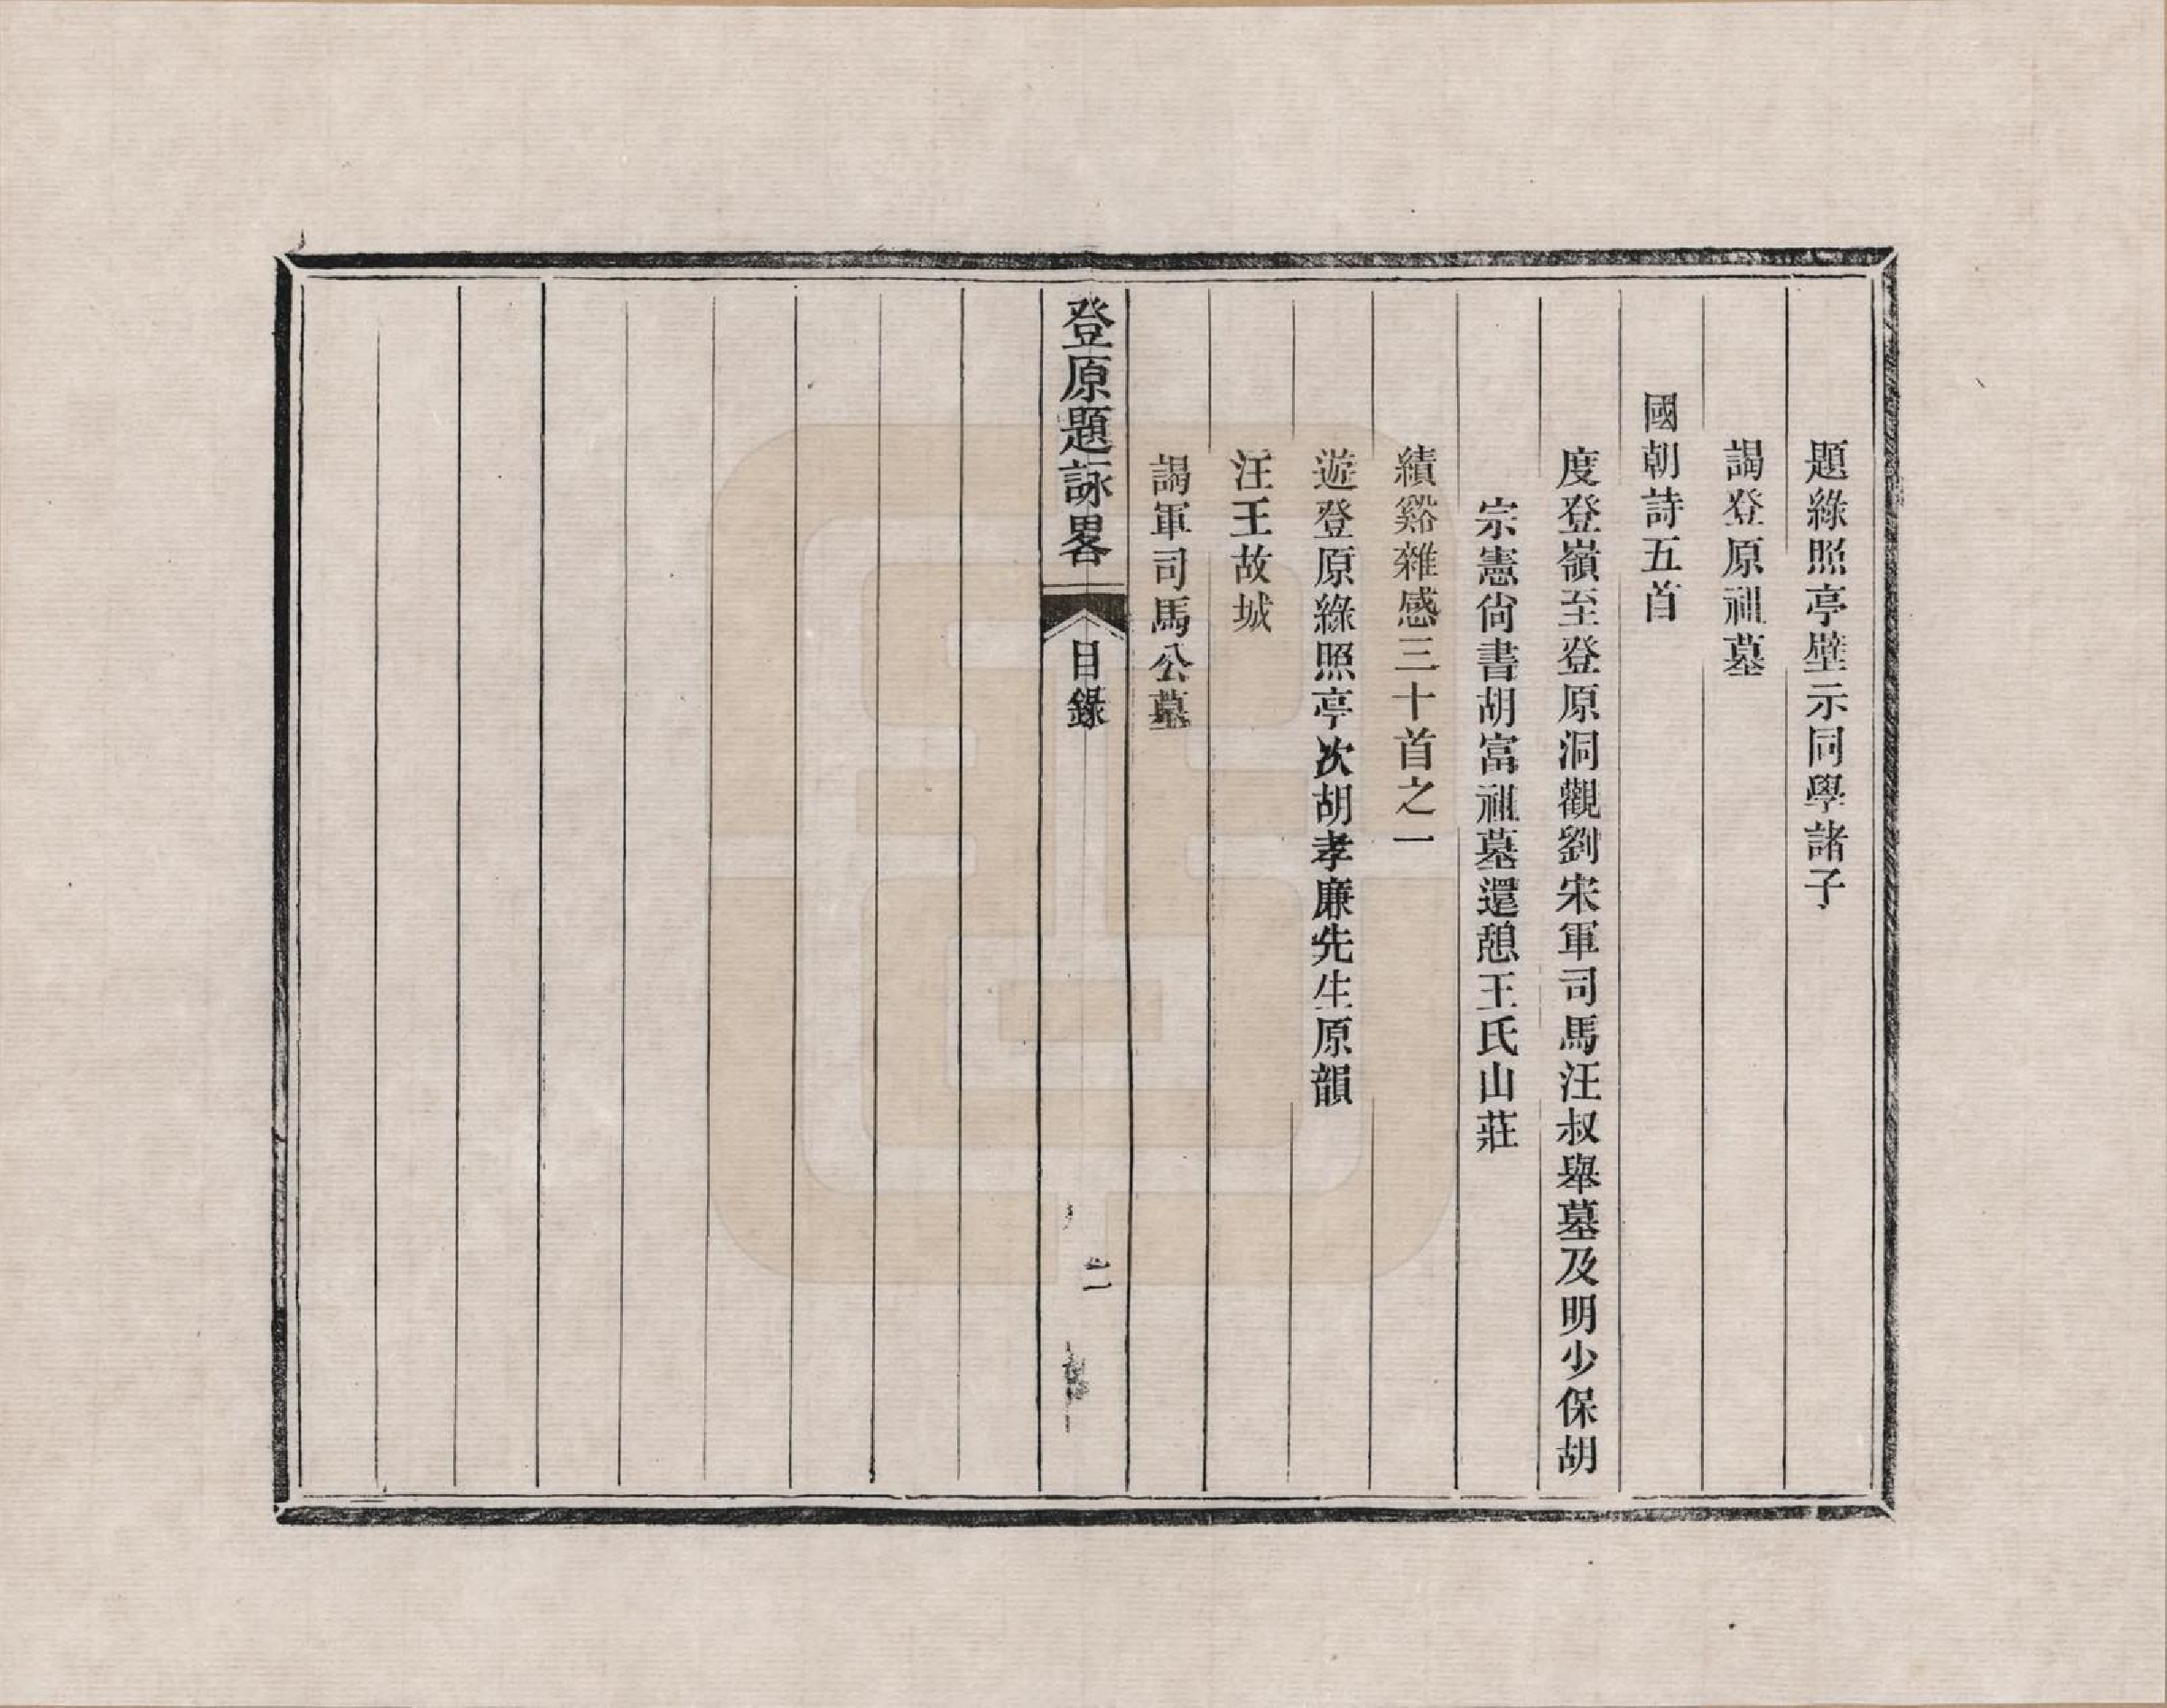 題綠照亭壁示同學諸子
謁登原祖墓
國朝詩五首
度登嶺至登原洞觀劉宋軍司馬汪叔舉墓及明少保胡
宗憲尙書胡富祖墓還憩王氏山莊
績谿雜感三十首之一
遊登原綠照亭次胡孝廉先生原韻
汪王故城
謁軍司馬公墓
登原題詠畧
目錄
二